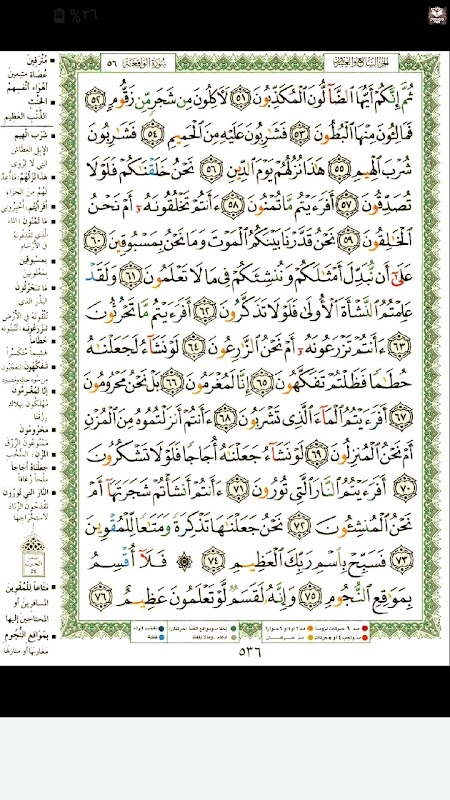 ٣٦%
الجزء السابع والعشرون
سورة الواقعة
٥٦
ثُمَّ إِنَّكُمْ أَيُّهَا ٱلضَّآلُّونَ ٱلْمُكَذِّبُونَ ٥١ لَـَٔاكِلُونَ مِن شَجَرٍ مِّن زَقُّومٍ ٥٢
فَمَالِـُٔونَ مِنْهَا ٱلْبُطُونَ ٥٣ فَشَـٰرِبُونَ عَلَيْهِ مِنَ ٱلْحَمِيمِ ٥٤ فَشَـٰرِبُونَ
شُرْبَ ٱلْهِيمِ ٥٥ هَـٰذَا نُزُلُهُمْ يَوْمَ ٱلدِّينِ ٥٦ نَحْنُ خَلَقْنَـٰكُمْ فَلَوْلَا
تُصَدِّقُونَ ٥٧ أَفَرَءَيْتُم مَّا تُمْنُونَ ٥٨ ءَأَنتُمْ تَخْلُقُونَهُۥٓ أَمْ نَحْنُ
ٱلْخَـٰلِقُونَ ٥٩ نَحْنُ قَدَّرْنَا بَيْنَكُمُ ٱلْمَوْتَ وَمَا نَحْنُ بِمَسْبُوقِينَ ٦٠
عَلَىٰٓ أَن نُّبَدِّلَ أَمْثَـٰلَكُمْ وَنُنشِئَكُمْ فِى مَا لَا تَعْلَمُونَ ٦١ وَلَقَدْ
عَلِمْتُمُ ٱلنَّشْأَةَ ٱلْأُولَىٰ فَلَوْلَا تَذَكَّرُونَ ٦٢ أَفَرَءَيْتُم مَّا تَحْرُثُونَ
٦٣ ءَأَنتُمْ تَزْرَعُونَهُۥٓ أَمْ نَحْنُ ٱلزَّٰرِعُونَ ٦٤ لَوْ نَشَآءُ لَجَعَلْنَـٰهُ
حُطَـٰمًا فَظَلْتُمْ تَفَكَّهُونَ ٦٥ إِنَّا لَمُغْرَمُونَ ٦٦ بَلْ نَحْنُ مَحْرُومُونَ
٦٧ أَفَرَءَيْتُمُ ٱلْمَآءَ ٱلَّذِى تَشْرَبُونَ ٦٨ ءَأَنتُمْ أَنزَلْتُمُوهُ مِنَ ٱلْمُزْنِ
أَمْ نَحْنُ ٱلْمُنزِلُونَ ٦٩ لَوْ نَشَآءُ جَعَلْنَـٰهُ أُجَاجًا فَلَوْلَا تَشْكُرُونَ
٧٠ أَفَرَءَيْتُمُ ٱلنَّارَ ٱلَّتِى تُورُونَ ٧١ ءَأَنتُمْ أَنشَأْتُمْ شَجَرَتَهَآ أَمْ
نَحْنُ ٱلْمُنشِـُٔونَ ٧٢ نَحْنُ جَعَلْنَـٰهَا تَذْكِرَةً وَمَتَـٰعًا لِّلْمُقْوِينَ
٧٣ فَسَبِّحْ بِٱسْمِ رَبِّكَ ٱلْعَظِيمِ ٧٤ ۞ فَلَآ أُقْسِمُ
بِمَوَٰقِعِ ٱلنُّجُومِ ٧٥ وَإِنَّهُۥ لَقَسَمٌ لَّوْ تَعْلَمُونَ عَظِيمٌ ٧٦
٥٣٦
مُتْرَفِينَ
الحِنْثِ
الذَّنْبِ العَظِيمِ
شُرْبَ الهِيمِ
الإبل العطاش
التي لا تروى
بمسبوقين
بمغلوبين
تفكهون
محرومون
ممنوعون الرزق
جعلناه أجاجا
النار التي تورون
متاعا للمقوين
المسافرين أو
المحتاجين إليها
بمواقع النجوم
مغاربها أو منازلها